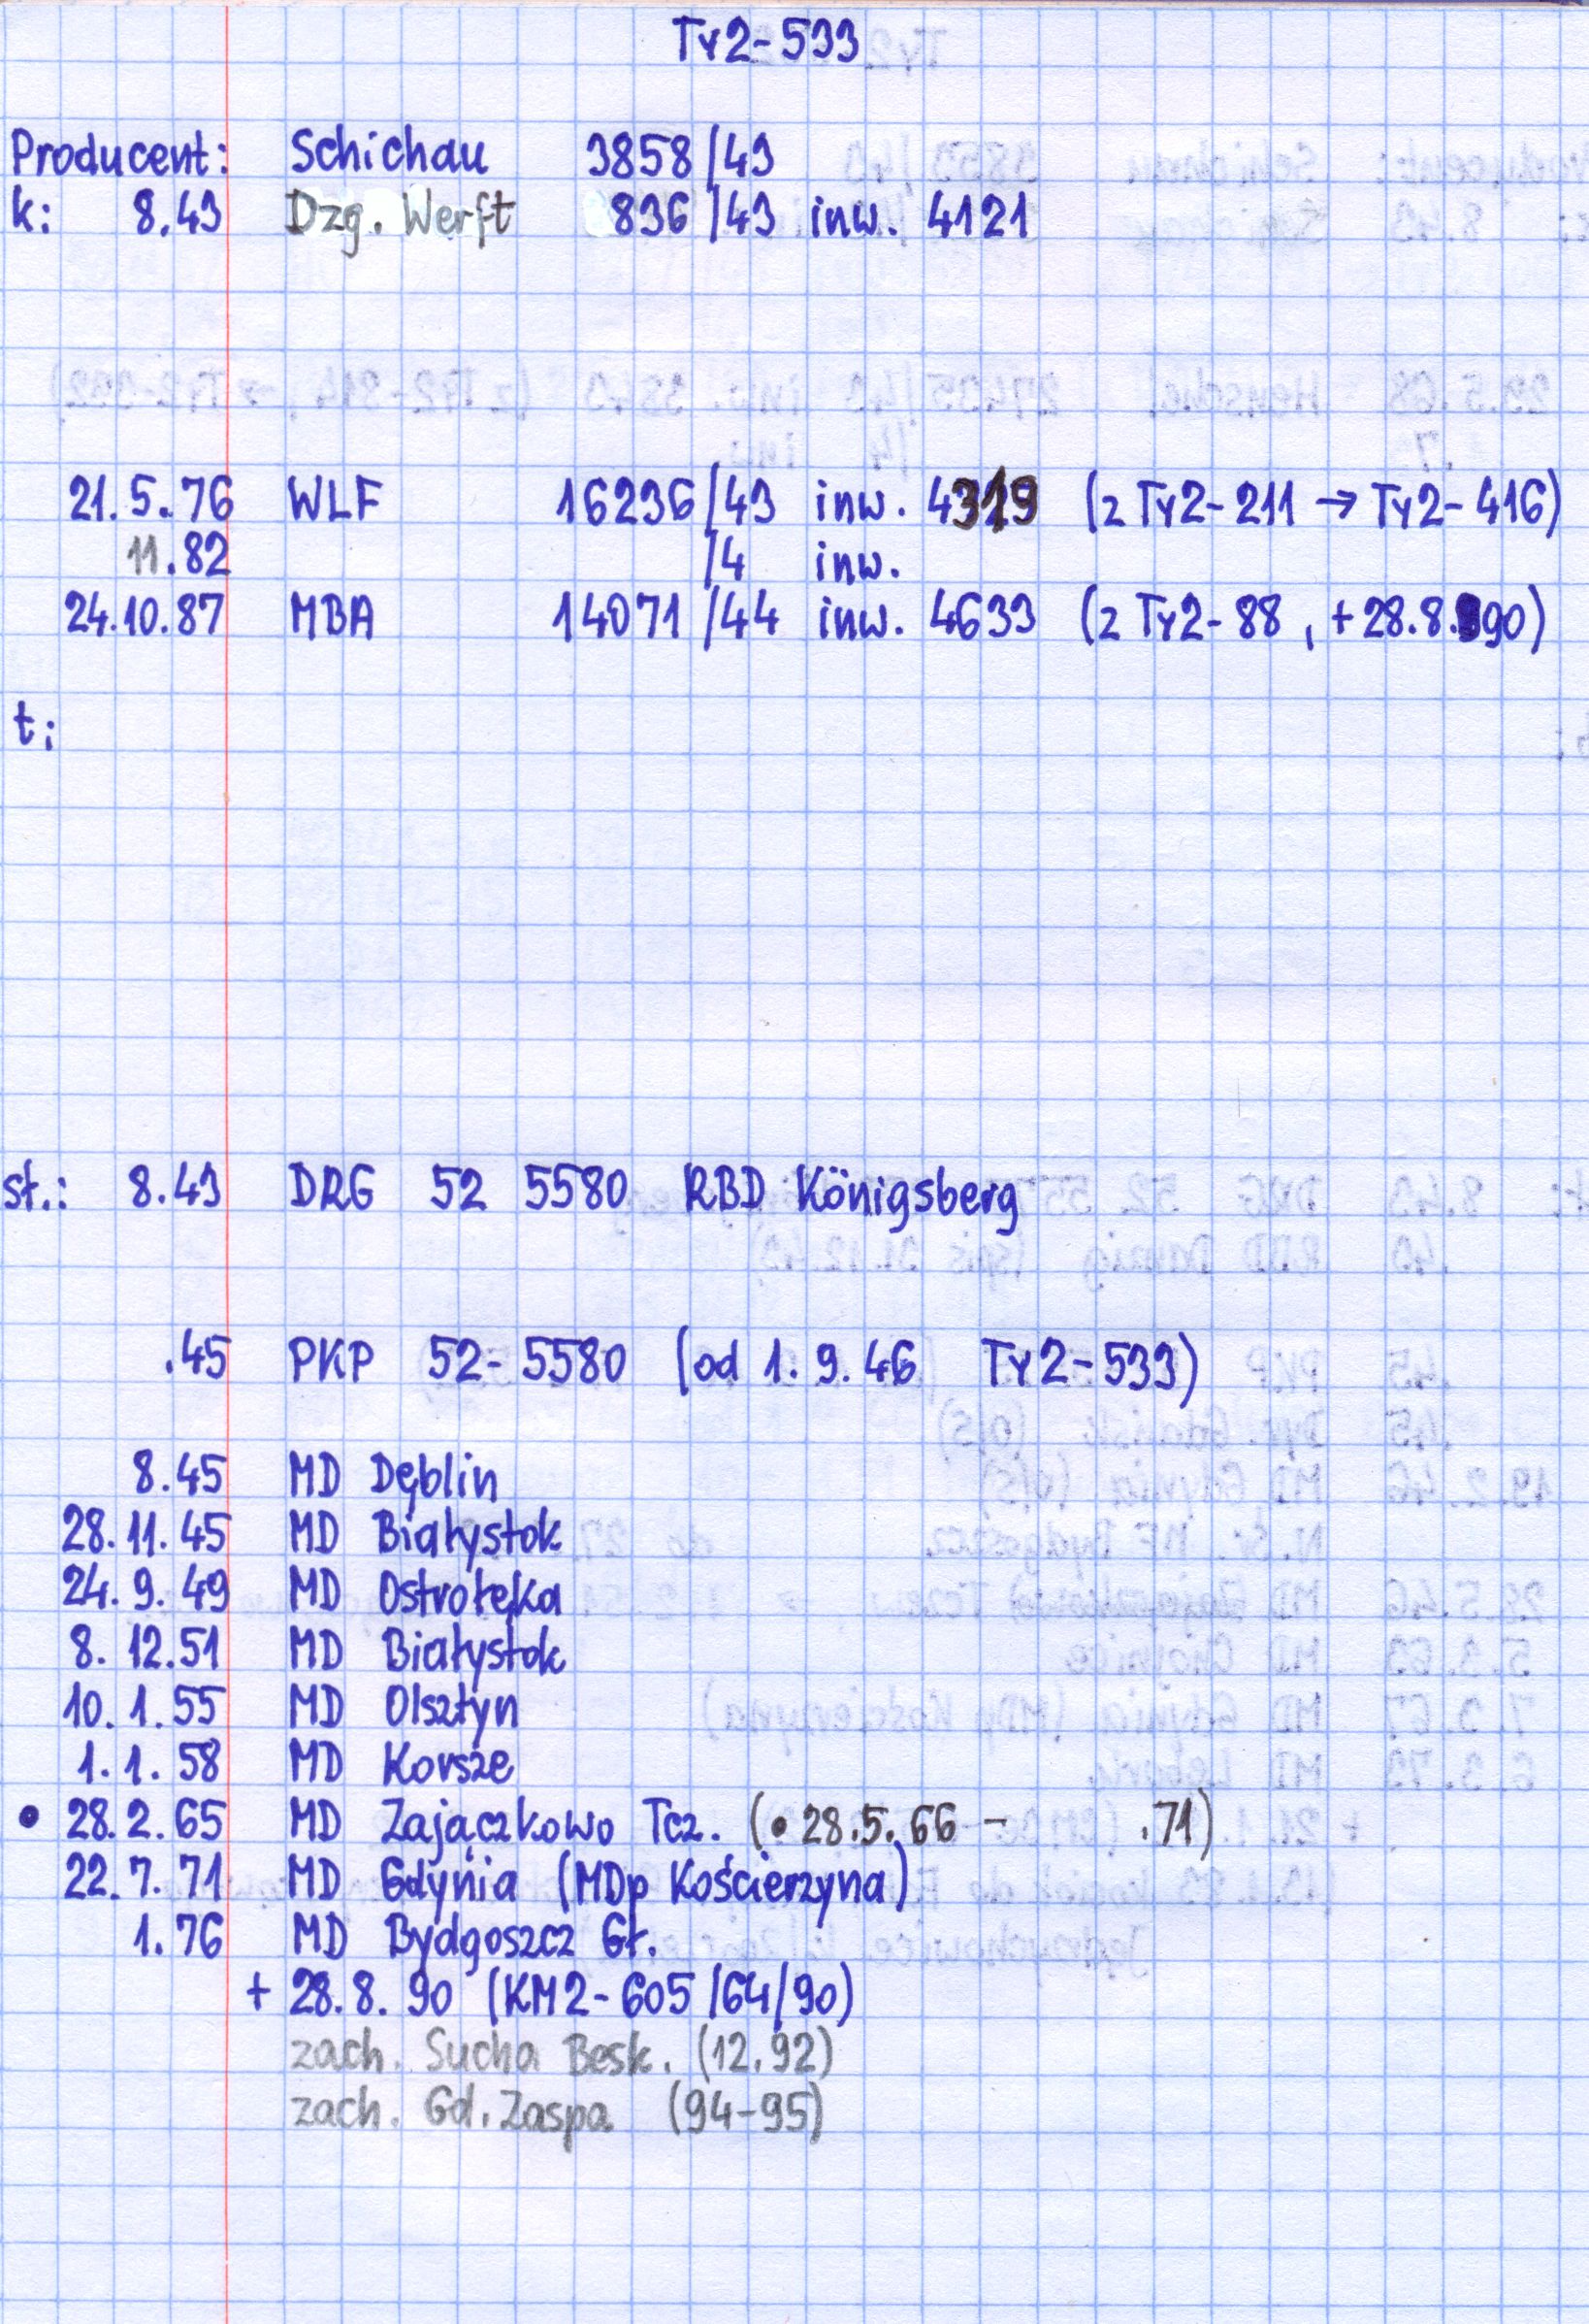 Ty2-533
Producent: Schichau 3858/43
k: 8.43 Dzg. Werft 836/43 inw. 4121
21.5.76 WLF 16236/43 inw. 4319 (z Ty2-211 → Ty2-416)
11.82 /4 inw.
24.10.87 MBA 14071/44 inw. 4633 (z Ty2-88, +28.8.90)
t:
st.: 8.43 DRG 52 5580 RBD Königsberg
.45 PKP 52-5580 (od 1.9.46 Ty2-533)
8.45 MD Dęblin
28.11.45 MD Białystok
24.9.49 MD Ostrołęka
8.12.51 MD Białystok
10.1.55 MD Olsztyn
1.1.58 MD Korsze
• 28.2.65 MD Zajączkowo Tcz. (• 28.5.66 - .71)
22.7.71 MD Gdynia (MDp Kościerzyna)
1.76 MD Bydgoszcz Gł.
+ 28.8.90 (KM2-605/64/90)
zach. Sucha Besk. (12.92)
zach. Gd. Zaspa (94-95)